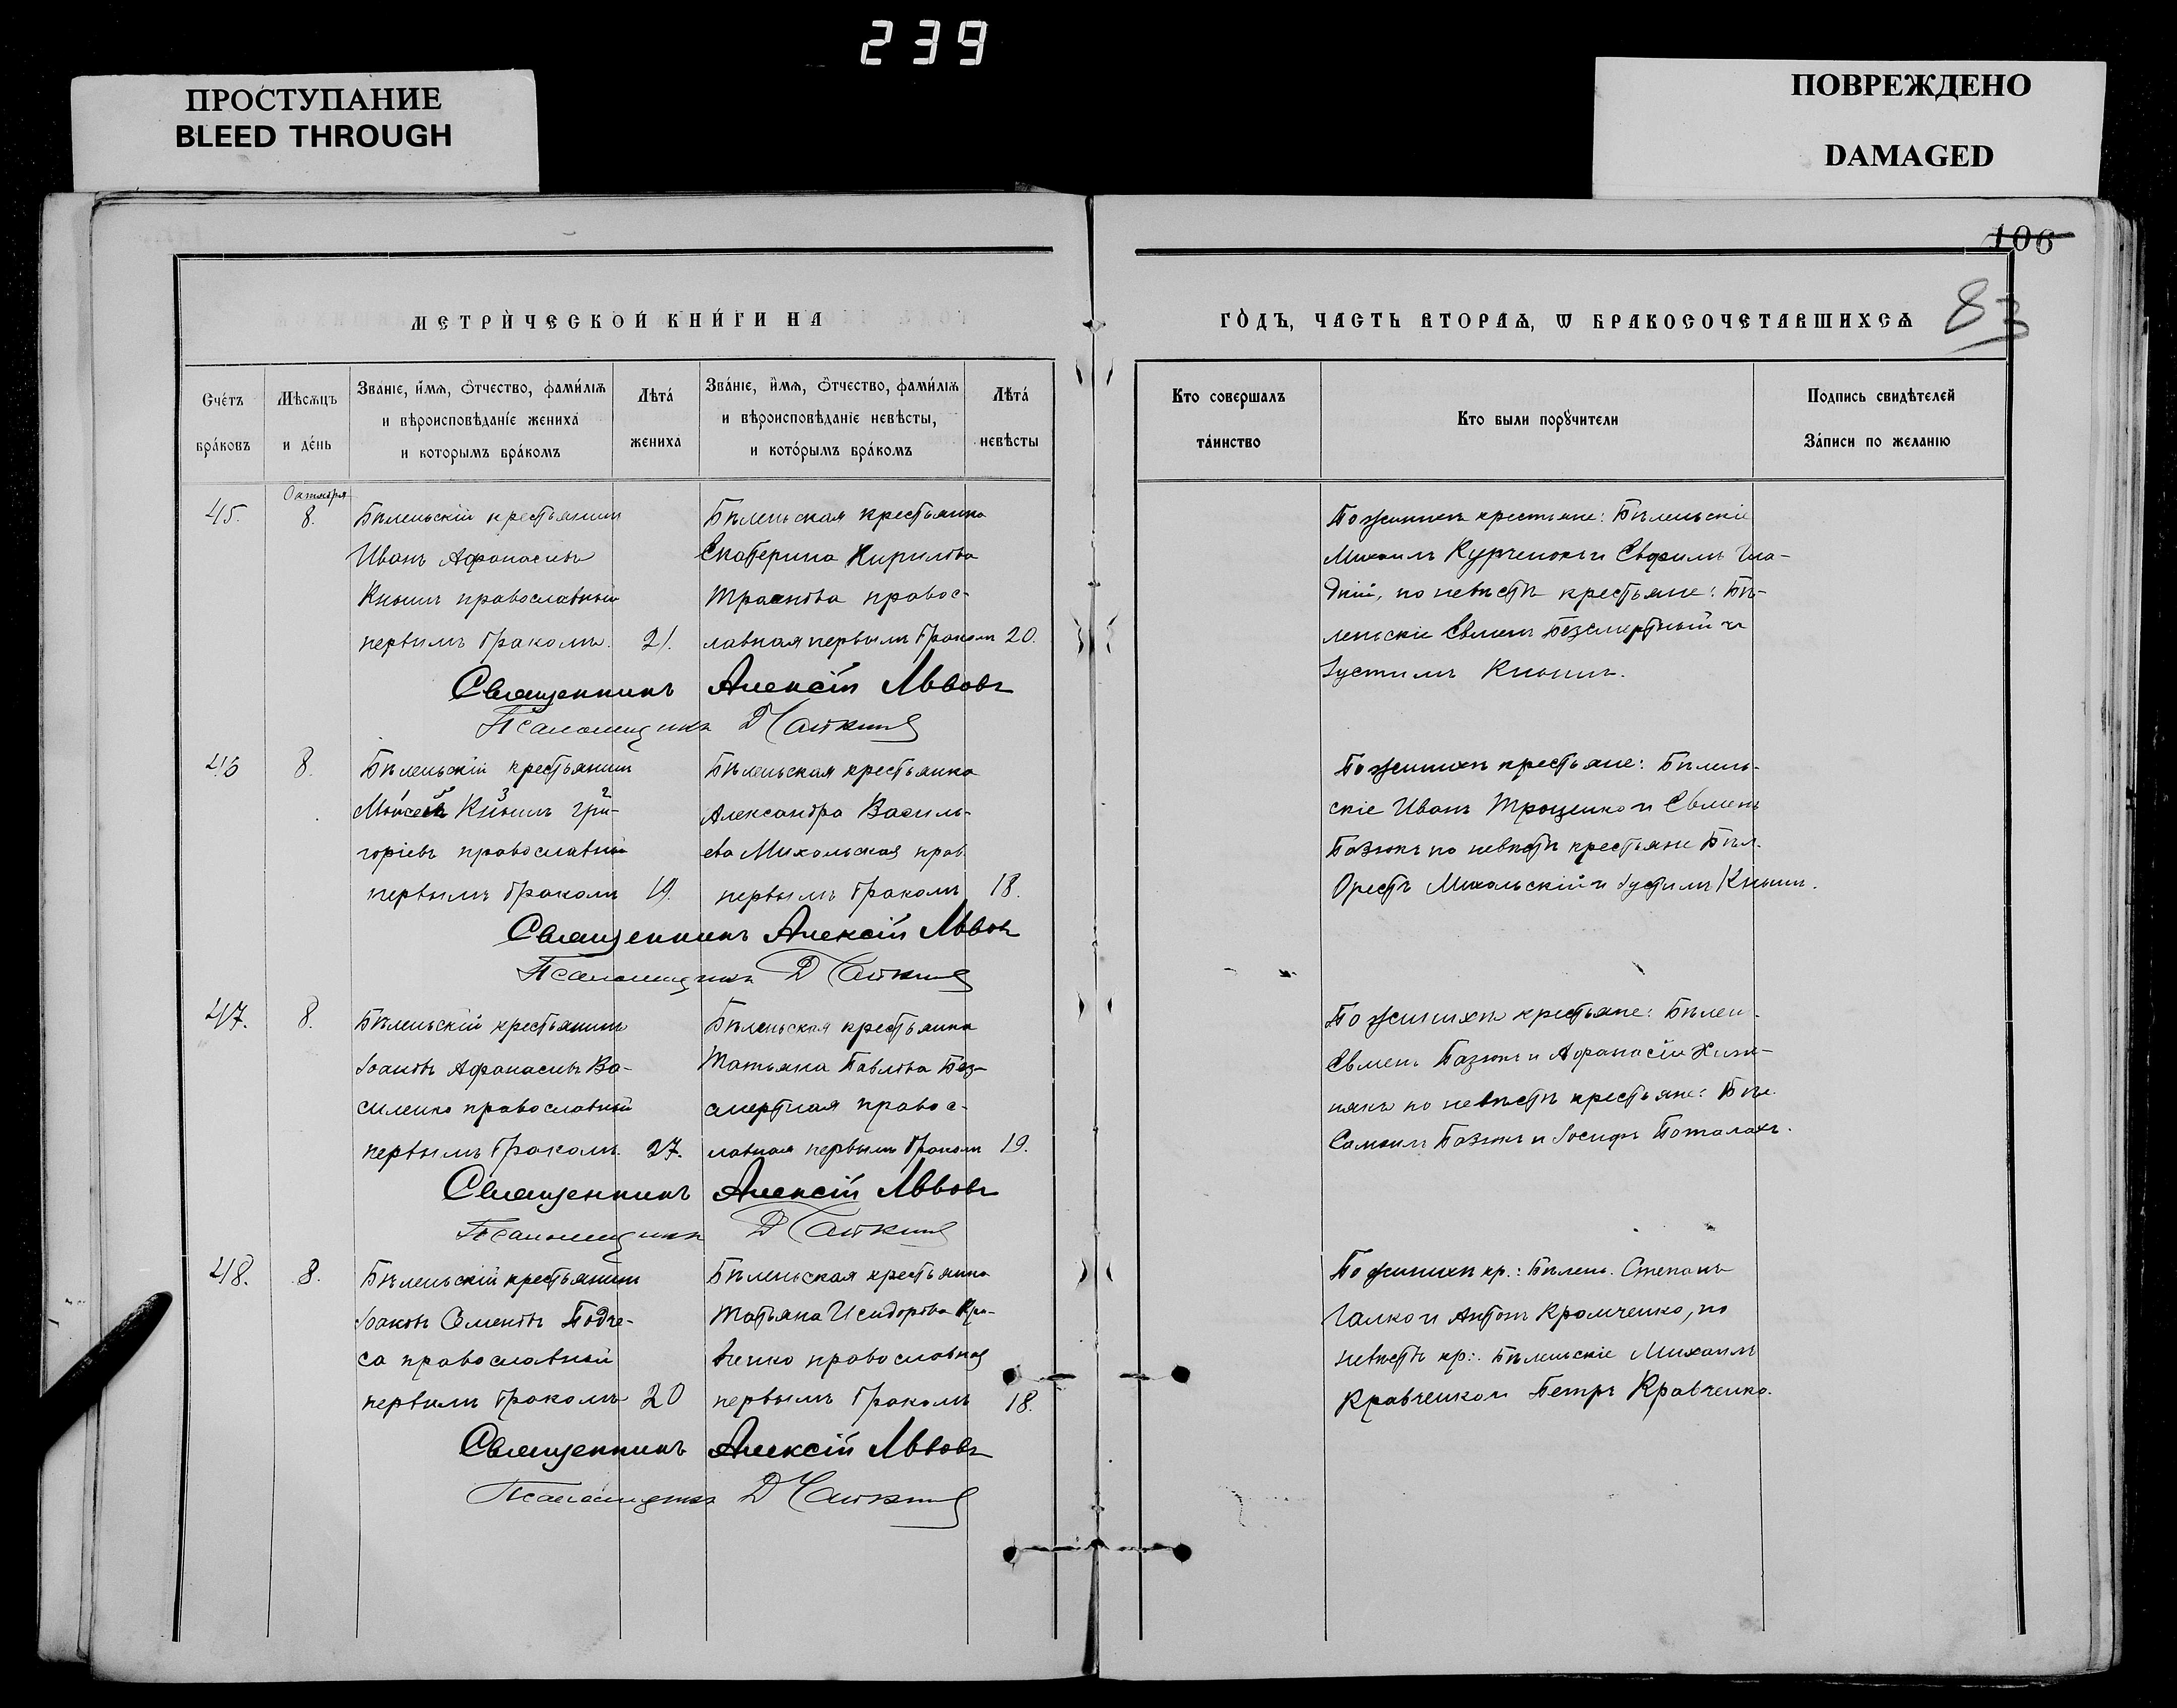 239
ПРОСТУПАНИЕ
BLEED THROUGH
ПОВРЕЖДЕНО
DAMAGED
106
83
МЕТРИ́ЧЕСКОЙ КНИ́ГИ НА
ГО́ДЪ, ЧАСТЬ ВТОРАѦ, Ѡ БРАКОСОЧЕТАВШИХСѦ
Сче́тъ бра́ковъ
Мѣсѧцъ и де́нь
Зва́нїе, и́мѧ, ѻ҆́тчество, фами́лїѧ
и вѣроисповѣданїе жениха̀
и которымъ бра́комъ
Лѣта́ жениха
Зва́нїе, и́мѧ, ѻ҆́тчество, фами́лїѧ
и вѣроисповѣданїе невѣсты,
и кото́рымъ бра́комъ
Лѣта́ невѣсты
Кто совершалъ та́инство
Кто были порꙋчители
Подпись свидѣтелей
За́писи по желанїю
Октября
45. 8.
Бѣленьскій крестьянинъ
Иванъ Афанасьевъ
Кнышъ православный
первымъ бракомъ. 21.
Бѣленьская крестьянка
Екатерина Кирилова
правос-
лавная первымъ бракомъ 20.
По женихѣ крестьяне: Бѣленьскіе
Михаилъ Курченокъ и Евфимъ Гла-
дкій, по невѣстѣ крестьяне: Бѣ-
ленскіе Евменъ Безсмертный и
Іустинъ Кнышъ.
Священникъ Алексій Львовъ
Псаломщикъ Д
46 8.
Бѣленьскій крестьянинъ
Моисей Кнышъ Гри-
горіевъ православный
первымъ бракомъ 19.
Бѣленьская крестьянка
Александра Василь-
ева Михальская прав.
первымъ бракомъ 18.
По женихѣ крестьяне: Бѣлень-
скіе Иванъ Троценко и Евменъ
Базюкъ по невѣстѣ крестьяне Бѣл.
Орестъ Михальскій и Іустинъ Кнышъ.
Священникъ Алексій Львовъ
Псаломщикъ Д
47. 8.
Бѣленьскій крестьянинъ
Іаковъ Афанасьевъ Ва-
силенко православный
первымъ бракомъ. 27.
Бѣленьская крестьянка
Татьяна Павлова Без-
смертная правос-
лавная первымъ бракомъ 19.
По женихѣ крестьяне: Бѣлен.
Евменъ Базюкъ и Афанасій Хиж-
някъ по невѣстѣ крестьяне: Бѣл.
Самоилъ Базюкъ и Іосифъ
Священникъ Алексій Львовъ
Псаломщикъ Д
48. 8.
Бѣленьскій крестьянинъ
Іаковъ Семеновъ
са православный
первымъ бракомъ 20
Бѣленьская крестьянка
Татьяна Исидорова Кра-
вченко православная
первымъ бракомъ 18.
По женихѣ кр.: Бѣлень. Степанъ
Галко и Антонъ Крамченко, по
невѣстѣ кр.: Бѣленьскіе Михаилъ
Кравченко и Петръ Кравченко.
Священникъ Алексій Львовъ
Псаломщикъ Д